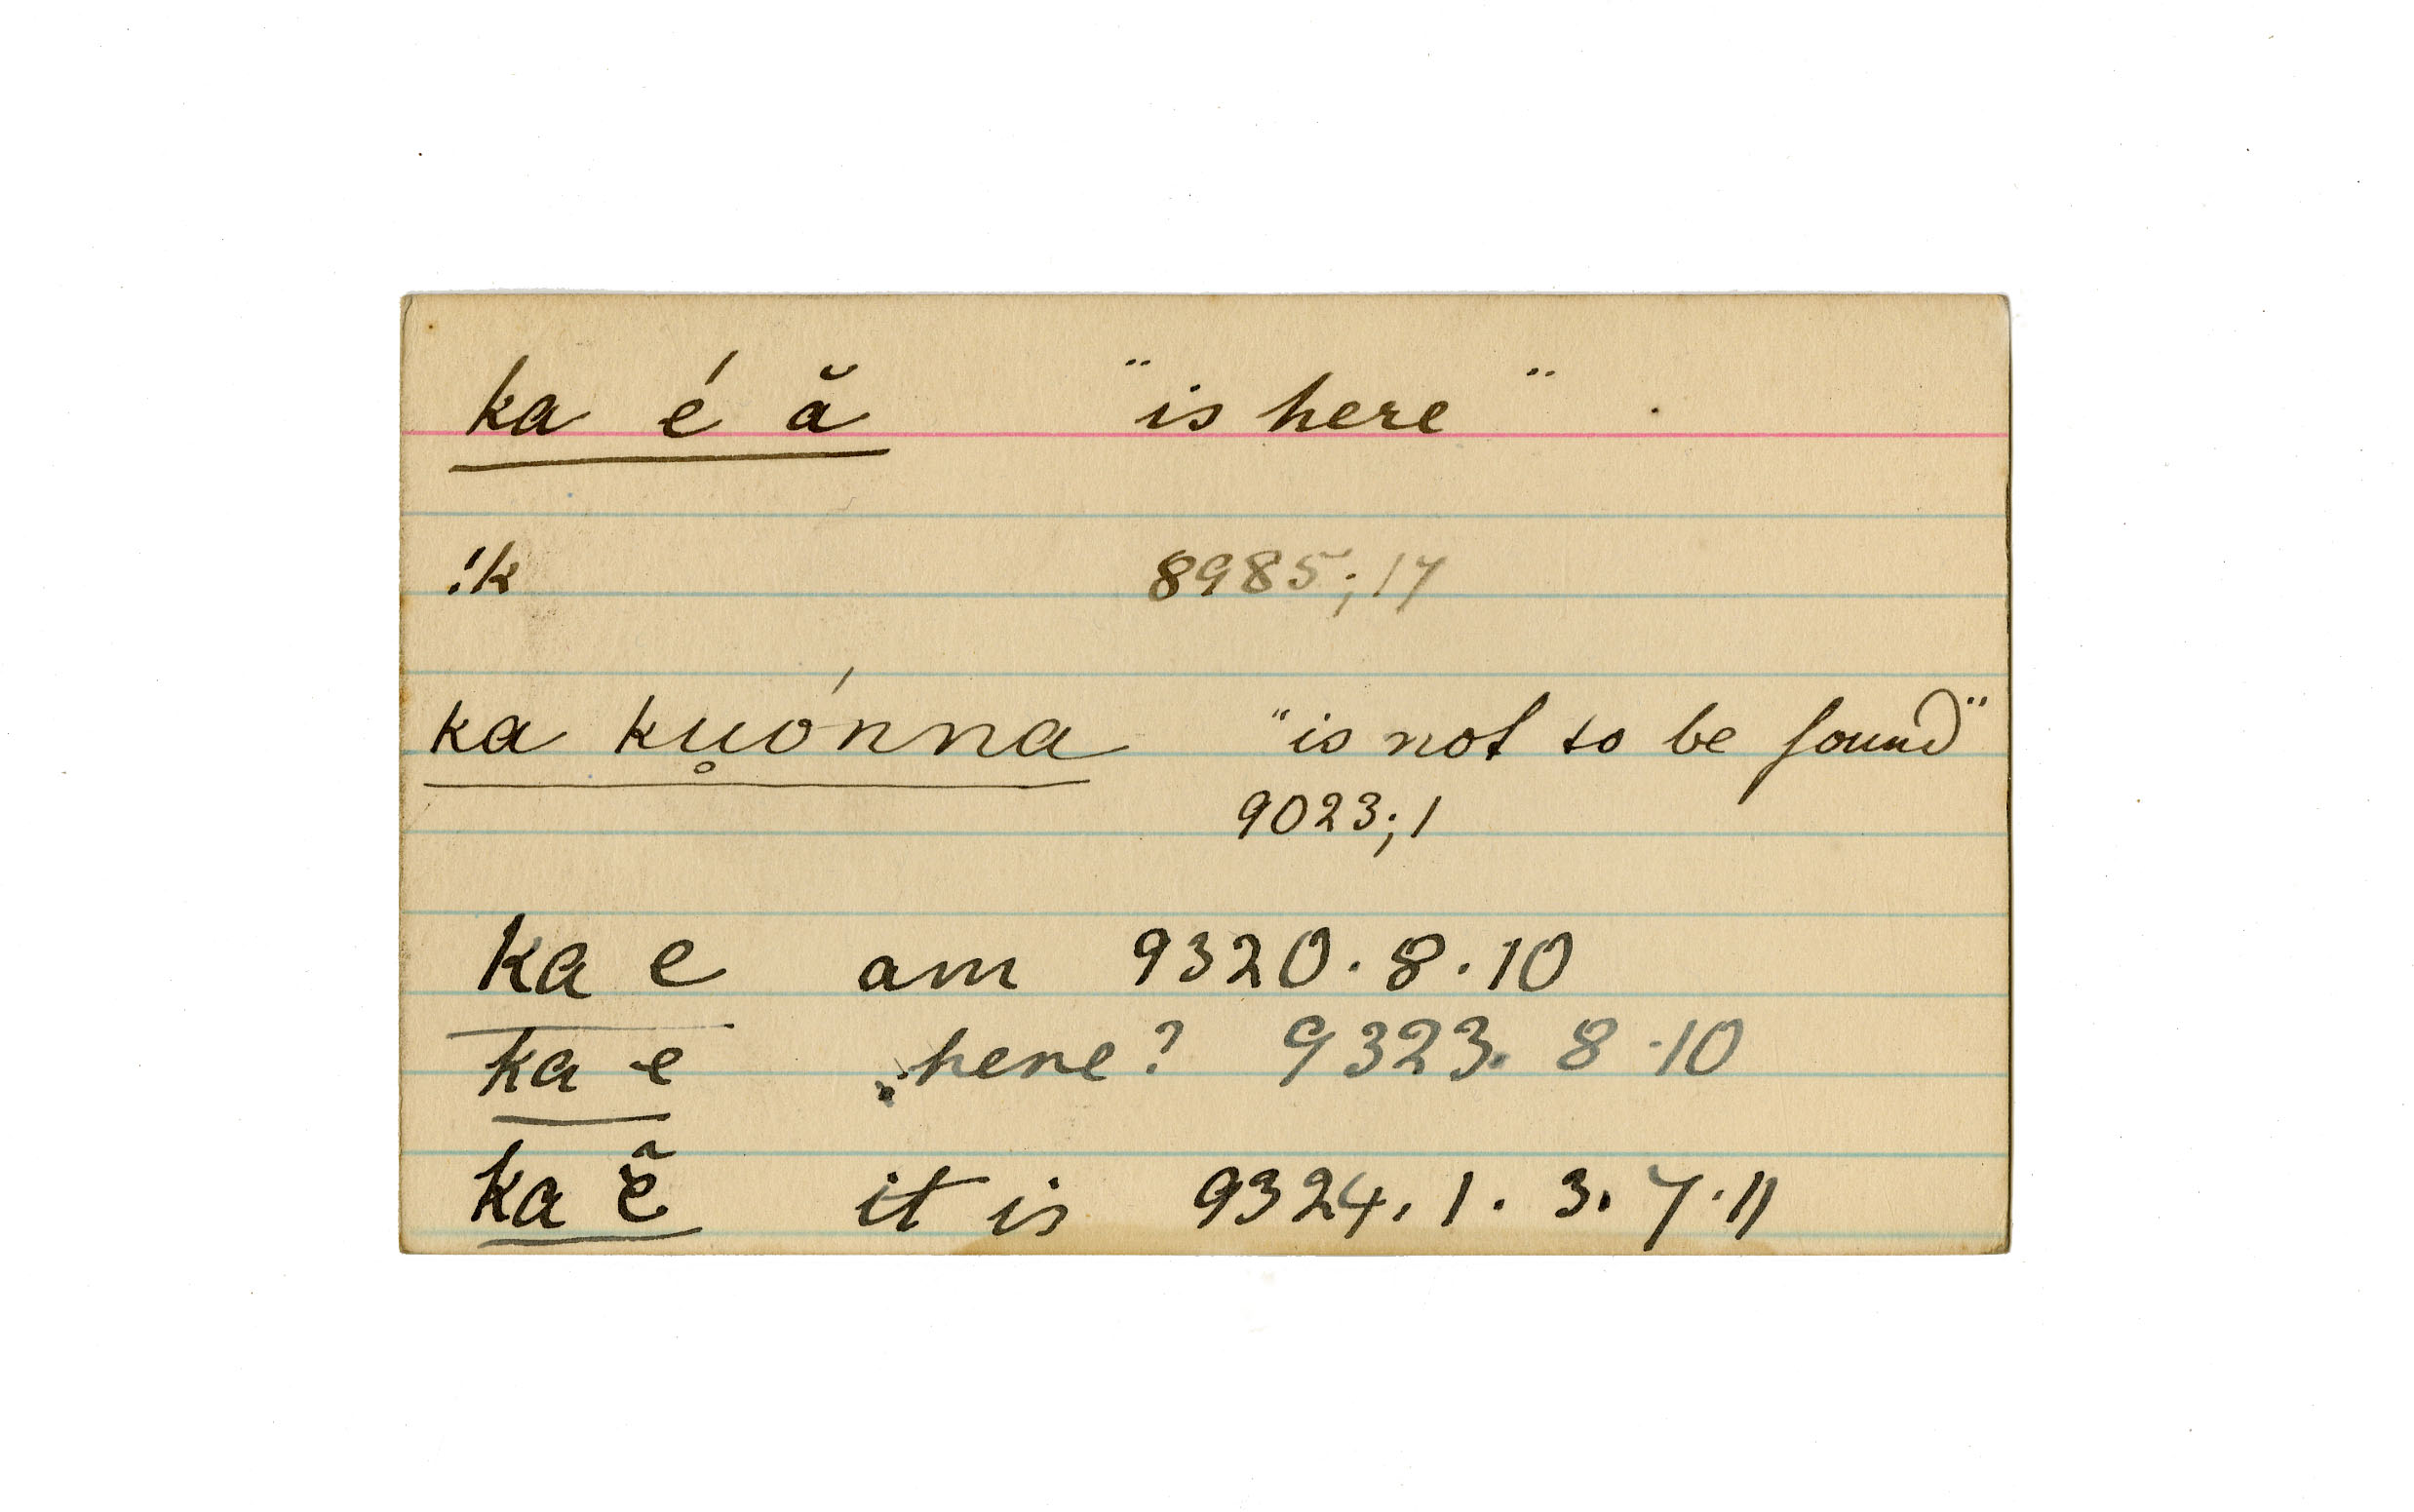 ka é ă "is here" .
!k 8985; 17
ka ku̥ónna "is not to be found"
9023; 1
ka e am 9320. 8. 10
ka e here? 9323. 8. 10
ka ẽ it is 9324, 1. 3. 7. 11